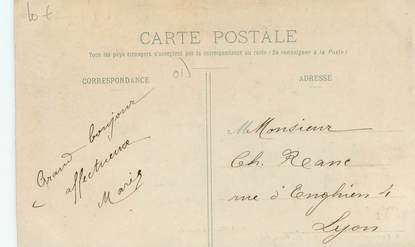 CARTE POSTALE
Tous les pays étrangers n'acceptent pas la correspondance au recto: (Se renseigner à la Poste)
CORRESPONDANCE
ADRESSE
Grand bonjour
affectueuse
Monsieur
Ch. Rane
rue d'Enghien 4
Lyon